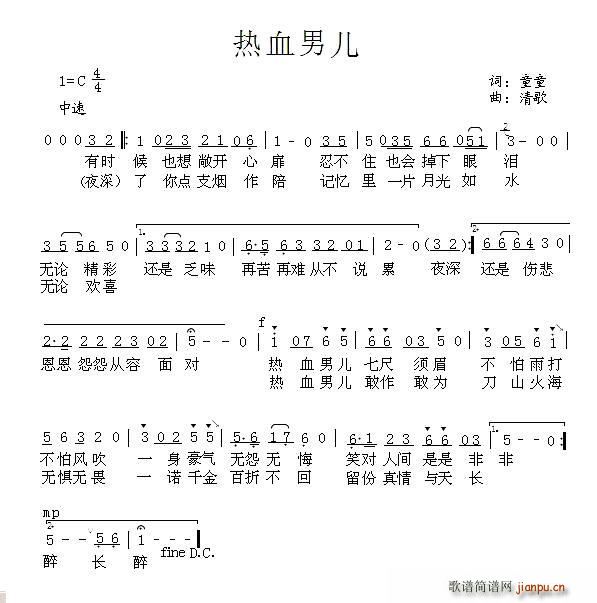 热血男儿
1=C 4/4
词：童童
中速
曲：清歌
0 0 0 3 2 1 0 2 3 2 1 0 6 1 - 0 3 5 1 0 5 3 5 0 2 0 5 1 3 - 0 0
有时 候 也想 敞开 心 扉 忍不 住 也会 掉下 眼 泪
(夜深) 了 你点 支烟 作 陪 记忆 里 一片 月光 如 水
3 5 5 5 6 5 0 1. 3 3 3 3 2 1 0 6·5 6 5 3 3 2 0 1 2 - 0 (3 2) 2. 6 6 6 6 4 3 0
无论 精彩 还是 乏味 再苦 再难 从不 说 累 夜深 还是 伤悲
无论 欢喜
2·2 2 2 2 3 0 2 5 - - 0 f i 0 7 6 5 1 0 2 3 2 3 0 5 6 i
恩恩 怨怨 从容 面 对 热 血 男儿 七尺 须眉 不 怕 雨打
热 血 男儿 敢作 敢为 刀 山 火海
5 6 3 2 0 3 0 2 5 5 5·6 1 0 5 6·1 2 3 6 6 0 3 1. 5 - - 0
不怕 风吹 一 身 豪气 无怨 无 悔 笑对 人间 是是 非 非
无惧 无畏 一 诺 千金 百折 不 回 留份 真情 与天 长
mp
2. 5 - 5 6 1 - - - fine D.C.
醉 长 醉
歌谱简谱网
jianpu.cn